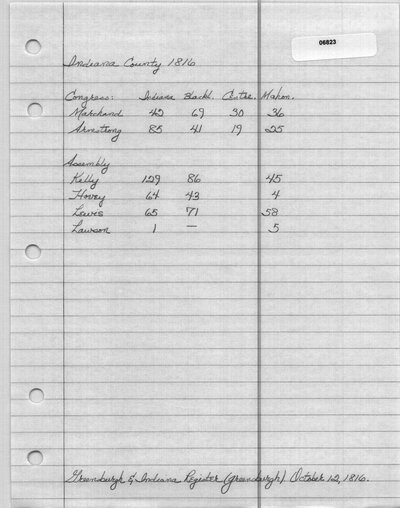 06823
Indiana County 1816
Congress: Indiana Blackl. Centre. Mahon.
Marchand 42 69 30 36
Armstrong 85 41 19 25
Assembly
Kelly 129 86 45
Hovey 64 43 4
Lewis 65 71 58
Lawson 1 — 5
Greensburgh & Indiana Register (Greensburgh) October 12, 1816.